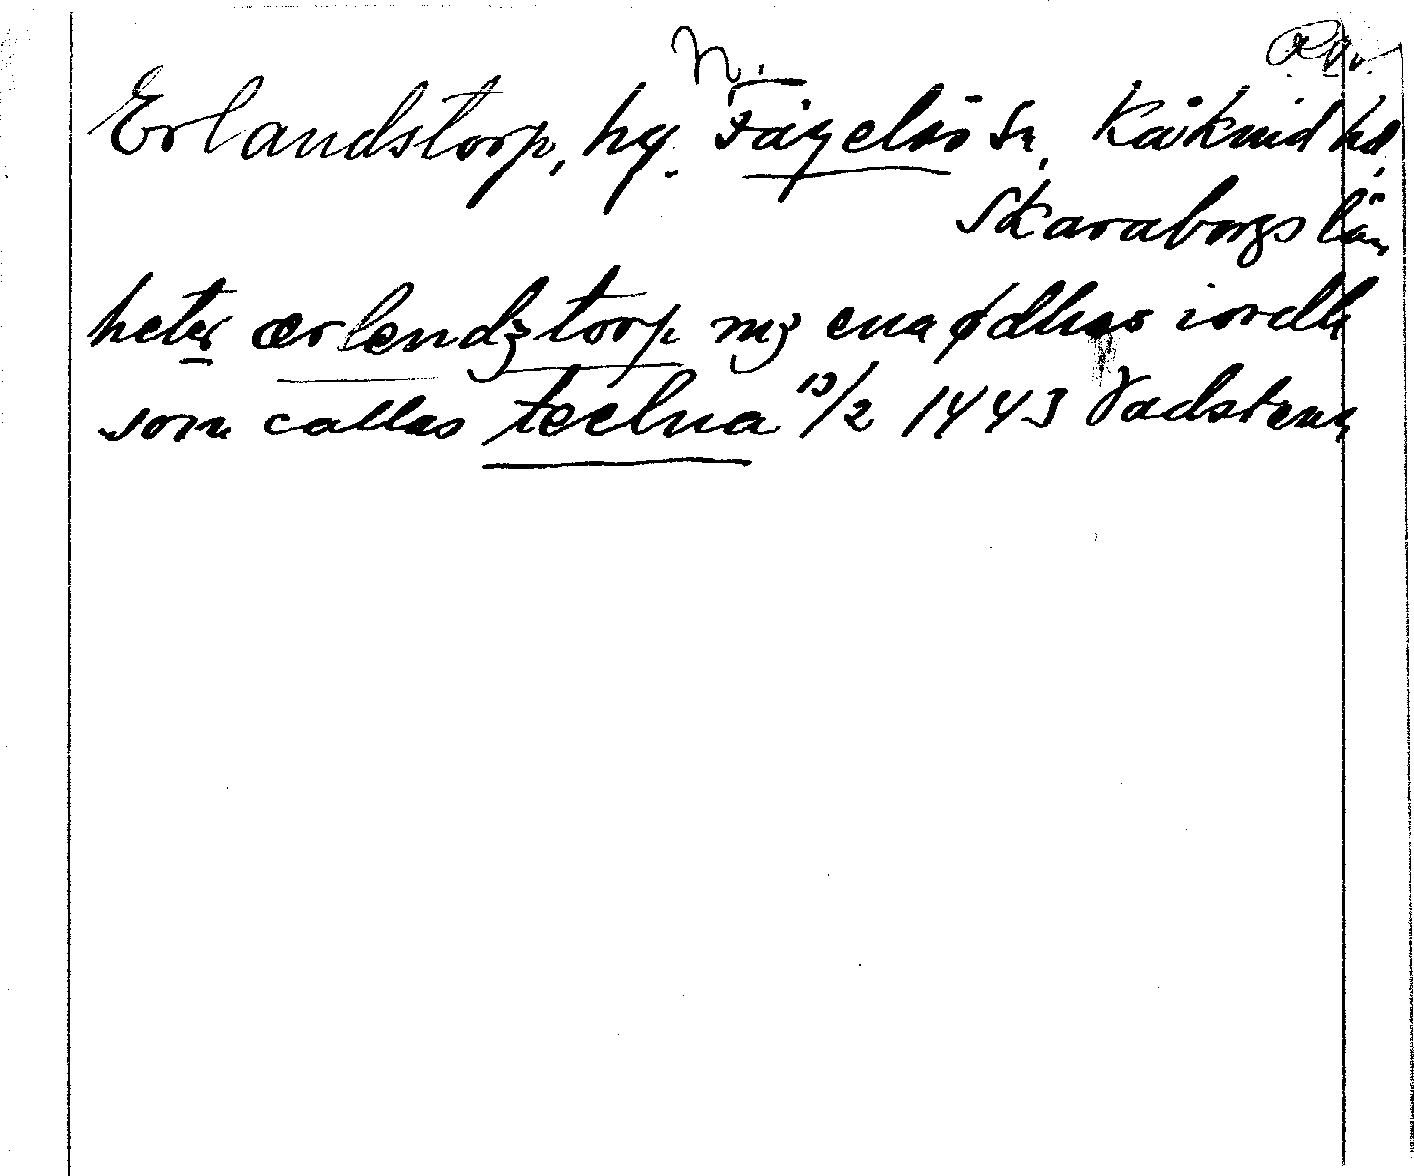 N. RAp.
Erlandstorp, hg. N. Fågelås sn, Kåkind hd,
Skaraborgs län
heter ærlendztorp mz ena ødhes iordh
som callas teelna 13/2 1443 Vadstena